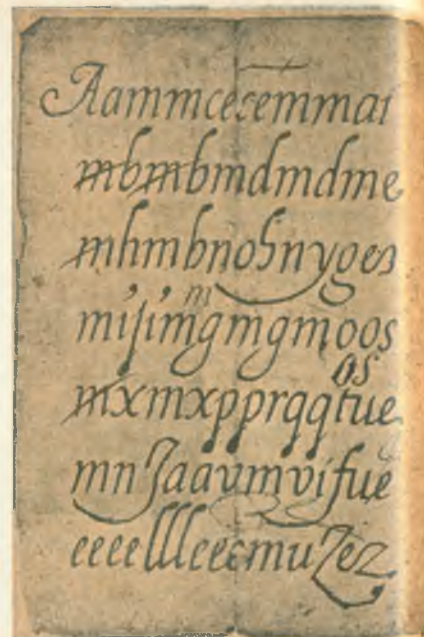 Aammcecemmai
mbmbmdmdme
mhmbnohnyges
m
mijimgmgmoos
os
mxmxpprqqtue
mnJaavmvifue
eeeellleecmuZez